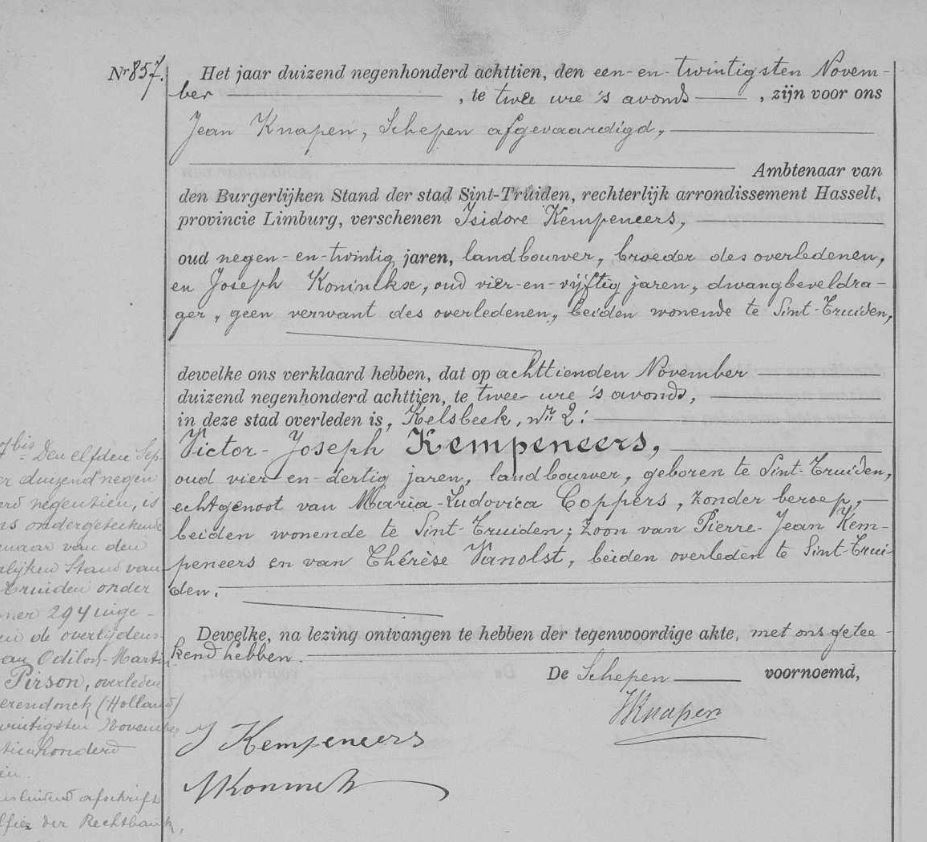 Nr 857.
Het jaar duizend negenhonderd achttien, den een-en-twintigsten Novem-
ber , te twee ure 's avonds , zijn voor ons
Jean Knapen, Schepen afgevaardigd,
Ambtenaar van
den Burgerlijken Stand der stad Sint-Truiden, rechterlijk arrondissement Hasselt,
provincie Limburg, verschenen Isidore Kempeneers,
oud negen-en-twintig jaren, landbouwer, broeder des overledenen,
en Joseph Koninckx, oud vier-en-vijftig jaren, dwangbeveldra-
ger, geen verwant des overledenen, beiden wonende te Sint-Truiden,
dewelke ons verklaard hebben, dat op achttienden November
duizend negenhonderd achttien, te twee ure 's avonds,
in deze stad overleden is, Helsbeek, nr. 2:
Victor-Joseph Kempeneers,
oud vier-en-dertig jaren, landbouwer, geboren te Sint-Truiden,
echtgenoot van Maria-Ludovica Coppers, zonder beroep,
beiden wonende te Sint-Truiden; zoon van Pierre-Jean Kem-
peneers en van Thérèse Vanolst, beiden overleden te Sint-Trui-
den.
Dewelke, na lezing ontvangen te hebben der tegenwoordige akte, met ons getee-
kend hebben.
De Schepen voornoemd,
JKnapen
J Kempeneers
7bis. Den elfden Sep-
duizend negen
negentien, is
ondergeteekende
van den
Stand van
Truiden onder
294 inge-
de overlijdens
Odilon-Martin
Pirson, overleden
(Holland)
twintigsten November
tienhonderd
afschrift
der Rechtbank,